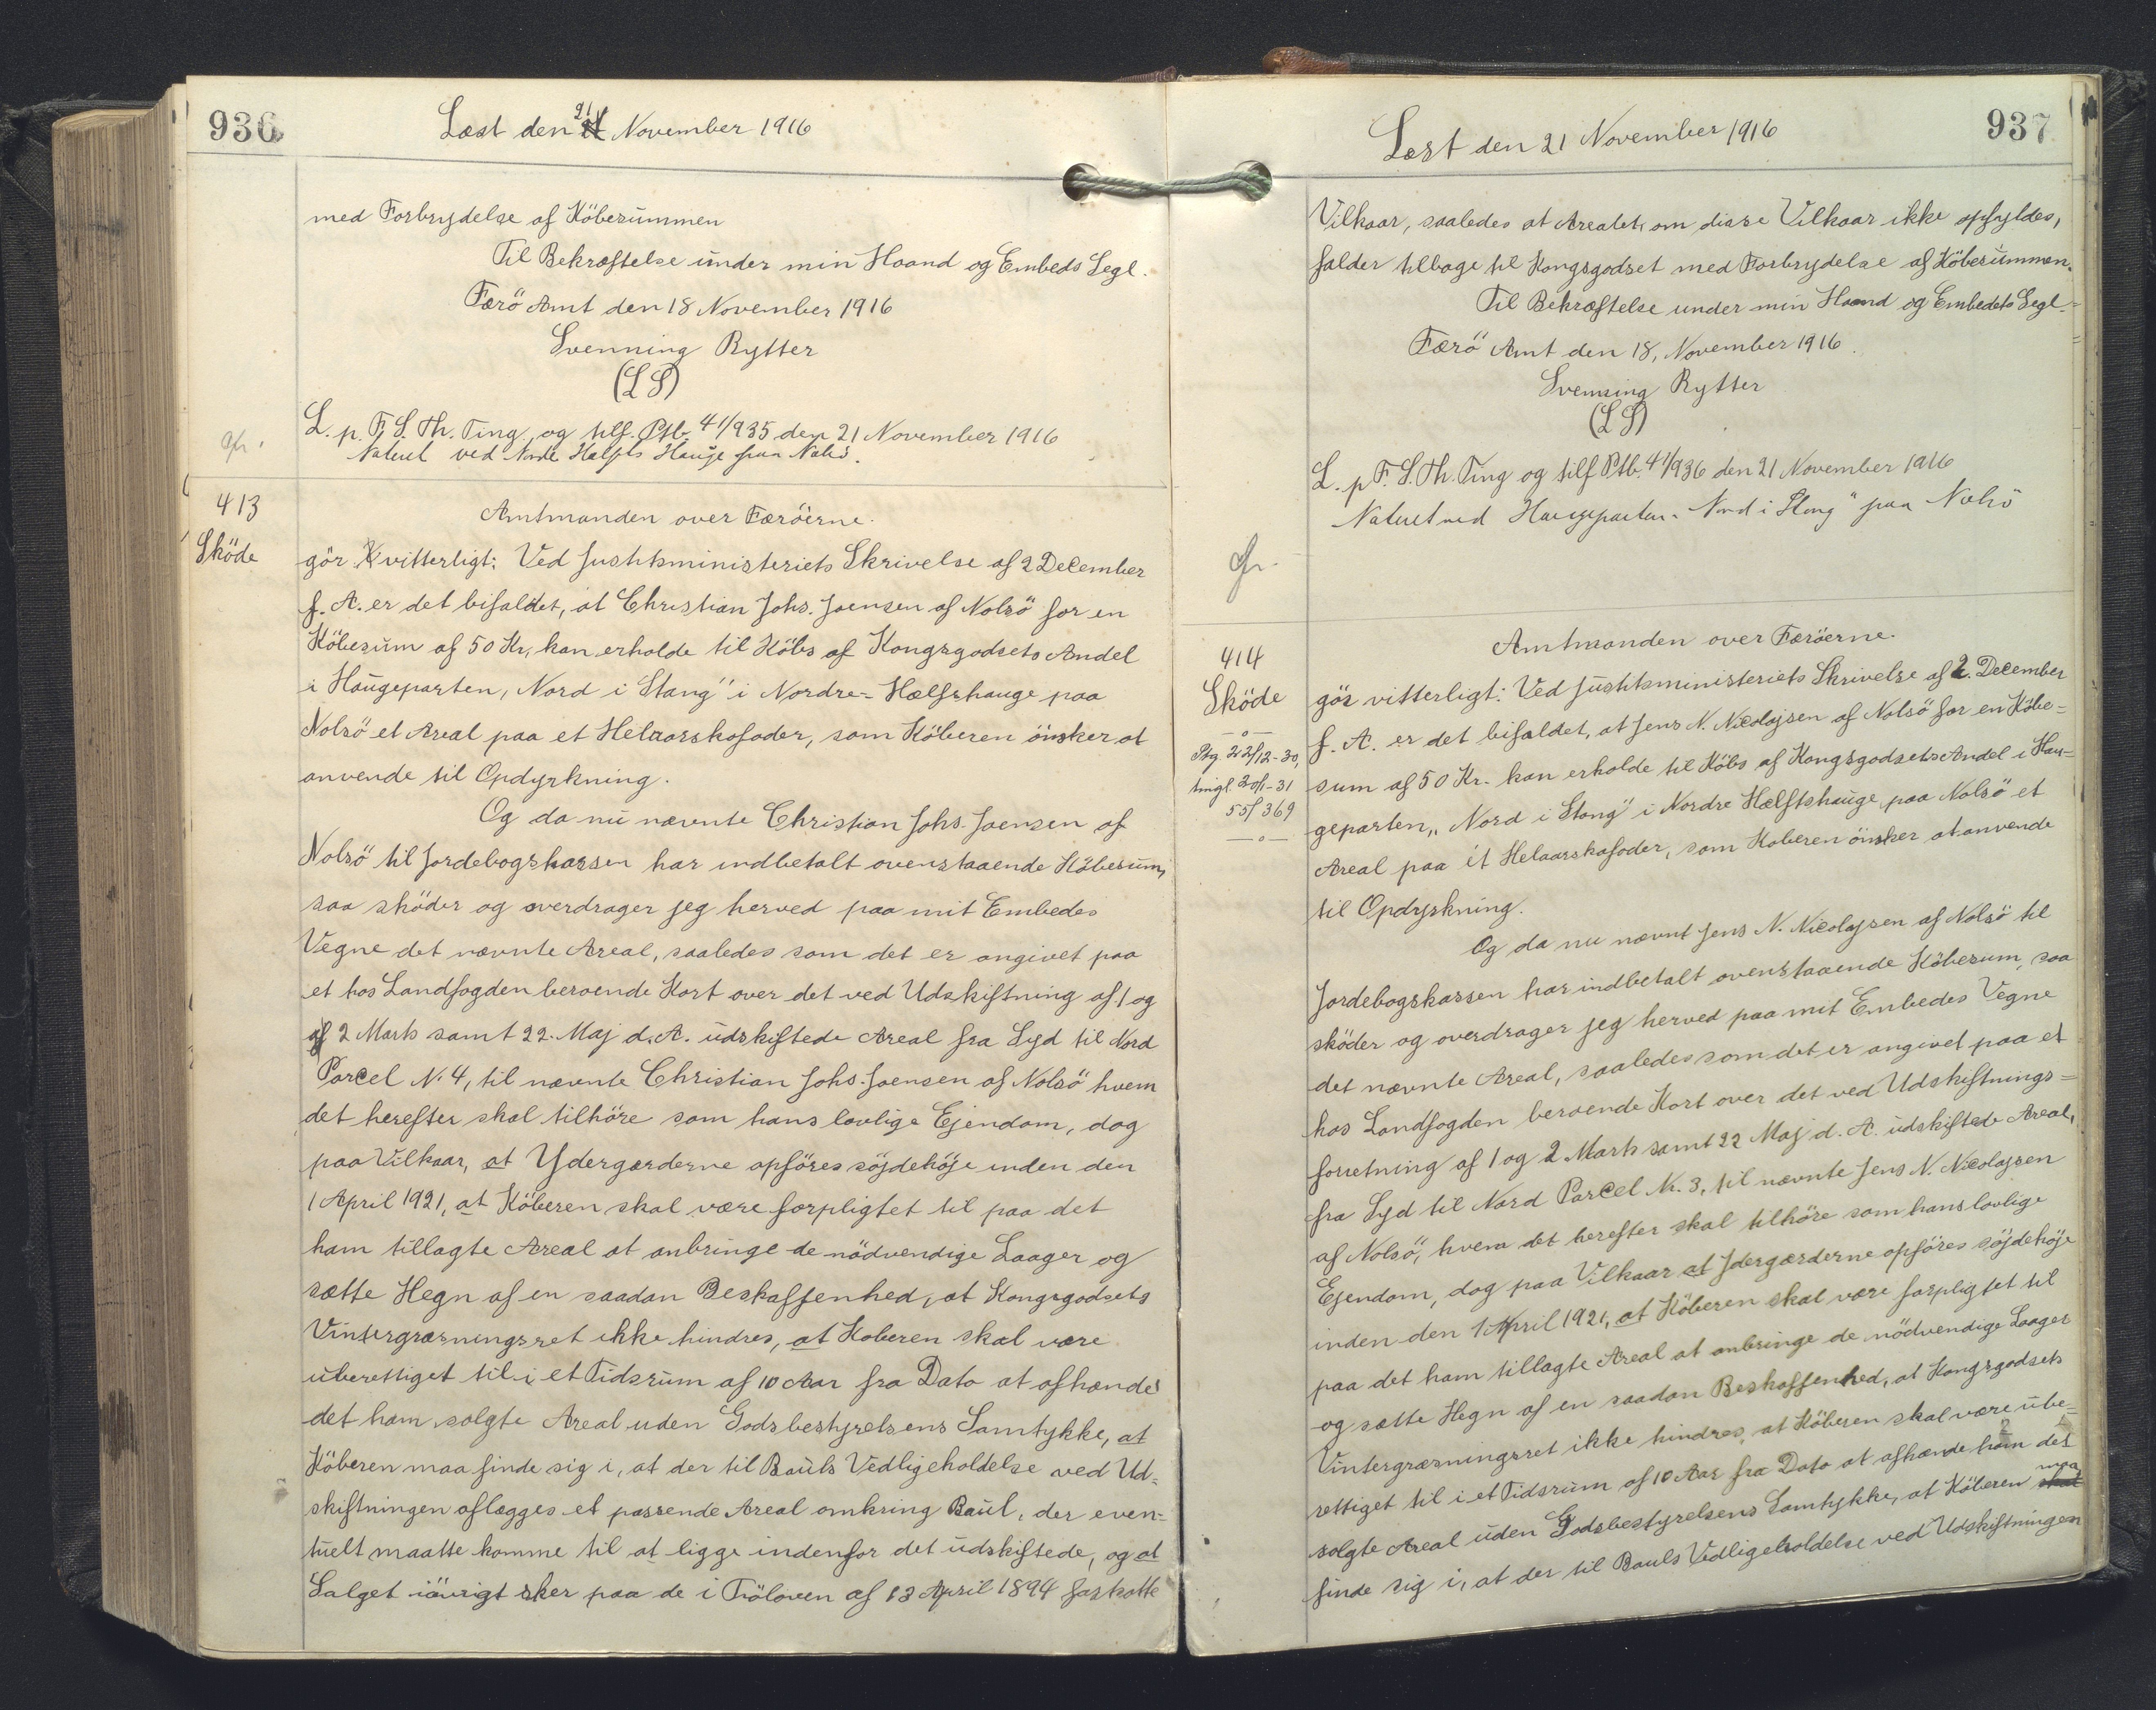 936
Læst den 21 November 1916
med Forbrydelse af Köbesummen
Til Bekræftelse under min Haand og Embeds Segl.
Færö Amt den 18 November 1916
Svenning Rytter
(L S)
L. p. F. S. Th. Ting, og tilf. Ptb. 41/935 den 21 November 1916
Naturl ved Nordre Halfts Hauge paa Nolsö.
413
Sköde
Amtmanden over Færöerne.
gör Kvitterligt: Ved Justitsministeriets Skrivelse af 2 December
f. A. er det bifaldet, at Christian Johs. Joensen af Nolsö for en
Köbesum af 50 Kr, kan erholde til Köbs af Kongsgodsets Andel
i Haugeparten, Nord i Stang" i Nordre-Hælfshauge paa
Nolsö et Areal paa et Helaarskofoder, som Köberen önsker at
anvende til Opdyrkning.
Og da nu nævnte Christian Johs. Joensen af
Nolsö til Jordebogskassen har indbetalt ovenstaaende Köbesum,
saa sköder og overdrager jeg herved paa mit Embedes
Vegne det nævnte Areal, saaledes som det er angivet paa
et hos Landfogden beroende Kort over det ved Udskiftning af 1 og
af 2 Marts samt 22. Maj d. A. udskiftede Areal fra Syd til Nord
Parcel N. 4, til nævnte Christian Johs. Joensen af Nolsö hvem
det herefter skal tilhöre som hans lovlige Ejendom, dog
paa Vilkaar, at Ydergærderne opföres söjdehöje inden den
1 April 1921, at Köberen skal være forpligtet til paa det
ham tillagte Areal at anbringe de nödvendige Laager og
sætte Hegn af en saadan Beskaffenhed, at Kongsgodsets
Vintergræsningsret ikke hindres, at Koberen skal være
uberettiget til i et Tidsrum af 10 Aar fra Dato at afhænde
det ham solgte Areal uden Godsbestyrelsens Samtykke, at
Köberen maa finde sig i, at der til Bauls Vedligeholdelse ved Ud-
skiftningen aflægges et passende Areal omkring Baul, der even-
tuelt maatte komme til at ligge indenfor det udskiftede, og at
Salget iövrigt sker paa de i Fröloven af 13 April 1894 fastsatte
Læst den 21 November 1916
937
Vilkaar, saaledes at Arealet, om disse Vilkaar ikke opfyldes,
falder tilbage til Kongsgodset med Forbrydelse af Köbesummen.
Til Bekræftelse under min Haand og Embedets Segl.
Færö Amt den 18, November 1916.
Svenning Rytter
(L S)
L. p F. S. Th. Ting og tilf Ptb. 41/936 den 21 November 1916
Naturl ved Haugeparten "Nord i Stang" paa Nolsö
414
Sköde
Ptg. 22/12-30,
tingl. 20/1-31
55/369
Amtmanden over Færöerne.
gör vitterligt: Ved Justitsministeriets Skrivelse af 2. December
f. A. er det bifaldet, at Jens N. Nicolajsen af Nolsö for en Köbe-
sum af 50 Kr. kan erholde til Köbs af Kongsgodsets Andel i Hau-
geparten „Nord i Stang" i Nordre Hælftshauge paa Nolsö et
Areal paa ét Helaarskofoder, som Koberen önsker at anvende
til Opdyrkning.
Og da nu nævnt Jens N. Nicolajsen af Nolsö til
Jordebogskassen har indbetalt ovenstaaende Köbesum, saa
sköder og overdrager jeg herved paa mit Embedes Vegne
det nævnte Areal, saaledes som det er angivet paa et
hos Landfogden beroende Kort over det ved Udskiftnings-
forretning af 1 og 2 Marts samt 22 Maj d. A. udskiftede Areal,
fra Syd til Nord Parcel N. 3, til nævnte Jens N. Nicolajsen
af Nolsö, hvem det herefter skal tilhöre som hans lovlige
Ejendom, dog paa Vilkaar at Ydergærderne opföres söjdehöje
inden den 1 April 1921, at Köberen skal være forpligtet til
paa det ham tillagte Areal at anbringe de nödvendige Laager
og sætte Hegn af en saadan Beskaffenhed, at Kongsgodsets
Vintergræsningsret ikke hindres, at Köberen skal være ube-
rettiget til i et Tidsrum af 10 Aar fra Dato at afhænde ham det
solgte Areal uden Godsbestyrelsens Samtykke, at Köberen skal maa
finde sig i, at der til Bauls Vedligeholdelse ved Udskiftningen